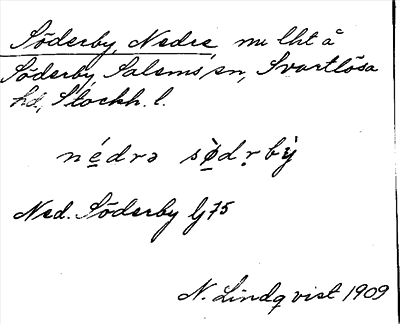 Söderby, Nedre, nu lht å
Söderby, Salems sn, Svartlösa
hd, Stockh. l.
né̱drə sø̱̀dr̥bỳ
Ned. Söderby Gj 75
N. Lindqvist 1909